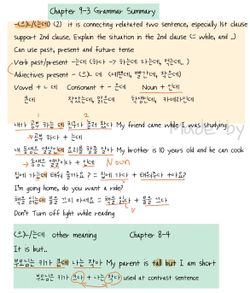 Chapter 9-3 Grammar Summary
-(으)ㄴ/는데 (2) it is connecting relatated two sentence, especially 1st clause
support 2nd clause. Explain the situation in the 2nd clause (= while, and ..)
Can use past, present and future tense
Verb past/present - 는데 (하다 → 하는데
Adjectives present - (으)ㄴ 데
Vowel + ㄴ데 Consonant + - 은데 Noun + 인데
큰데 작았는데, 많은데 학생인데,
내가 공부 하는 데 친구가 놀러 왔다 My friend came while I was studying
공부 하다 + 는데
내 동생은 열살인데 요리를 할 My brother is 10 years old and he can cook
Noun
집에 가는데 태워 줄까요? = 집에 가다 + 태워주다
I'm going home, do you want a ride?
책을 읽는데 불을 끄지 마세요 = 책을 읽다 + 불을
Don't Turn off light while reading
(으)ㄴ/는데 other meaning Chapter 8-4
It is but..
부모님은 키가 큰데 나는 작다 My parent is tall but I am short
부모님은 키가 크다 + 나는 작다 used at contrast sentence
Made by